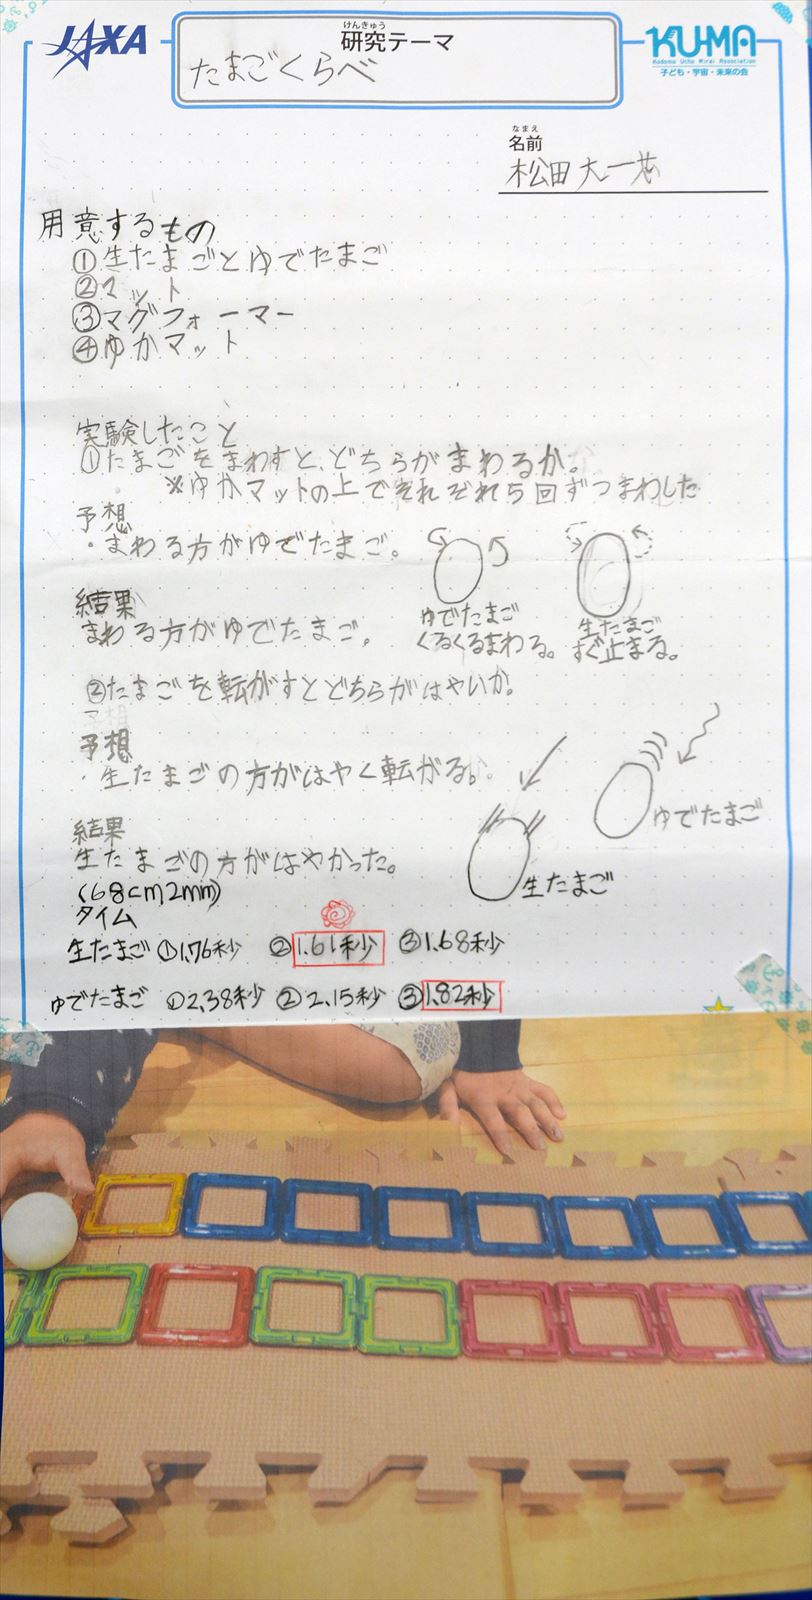 JAXA
けんきゅう
研究テーマ
たまごくらべ
KU-MA
Kodomo Uchu Mirai Association
子ども・宇宙・未来の会
なまえ
名前
松田大一
用意するもの
①生たまごとゆでたまご
②マット
③マグフォーマー
④ゆかマット
実験したこと
①たまごをまわすと、どちらがまわるか。
※ゆかマットの上でそれぞれ5回ずつまわした
予想
・まわる方がゆでたまご。
結果
まわる方がゆでたまご。
ゆでたまご
くるくるまわる。
生たまご
すぐ止まる。
②たまごを転がすとどちらがはやいか。
予想
・生たまごの方がはやく転がる。
ゆでたまご
結果
生たまごの方がはやかった。
生たまご
(68cm2mm)
タイム
生たまご ①1.76秒 ②1.61秒 ③1.68秒
ゆでたまご ①2.38秒 ②2.15秒 ③1.82秒